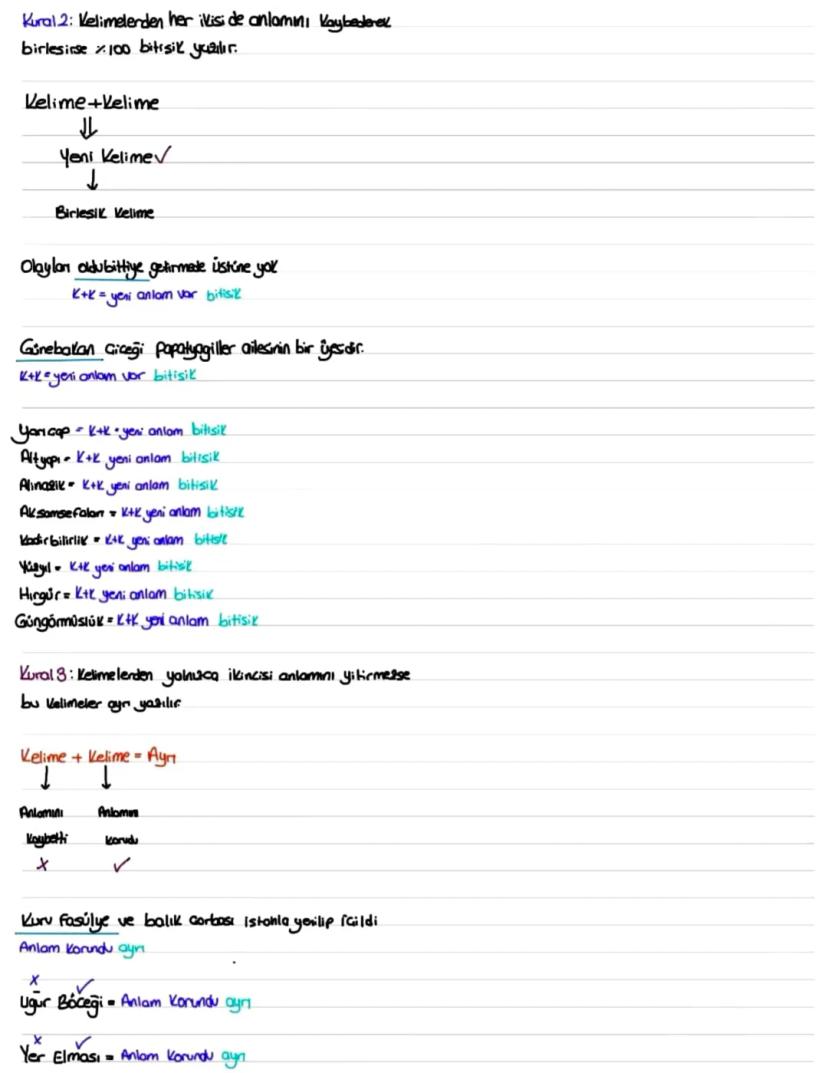 Kural 2: Kelimelerden her ikisi de anlamını kaybederek
birleşirse %100 bitişik yazılır.
Kelime+Kelime
⇓
Yeni Kelime✓
↓
Birleşik Kelime
Olayları oldubittiye getirmede üstüne yok
K+K = yeni anlam var bitişik
Günebakan çiçeği papatyagiller ailesinin bir üyesidir.
K+K = yeni anlam var bitişik
Yarıçap = K+K = yeni anlam bitişik
Altyapı = K+K yeni anlam bitişik
Alınazik = K+K yeni anlam bitişik
Akşamsefaları = K+K yeni anlam bitişik
Kadirbilirlik = K+K yeni anlam bitişik
Yüzyıl = K+K yeni anlam bitişik
Hırgür = K+K yeni anlam bitişik
Güngörmüşlük = K+K yeni anlam bitişik
Kural 3: Kelimelerden yalnızca ikincisi anlamını yitirmezse
bu kelimeler ayrı yazılır
Kelime + Kelime = Ayrı
↓ ↓
Anlamını Anlamını
Kaybetti Korudu
x ✓
Kuru fasülye ve balık çorbası iştahla yenilip içildi
Anlam korundu ayrı
x ✓
Uğur Böceği = Anlam Korundu ayrı
x ✓
Yer Elması = Anlam Korundu ayrı